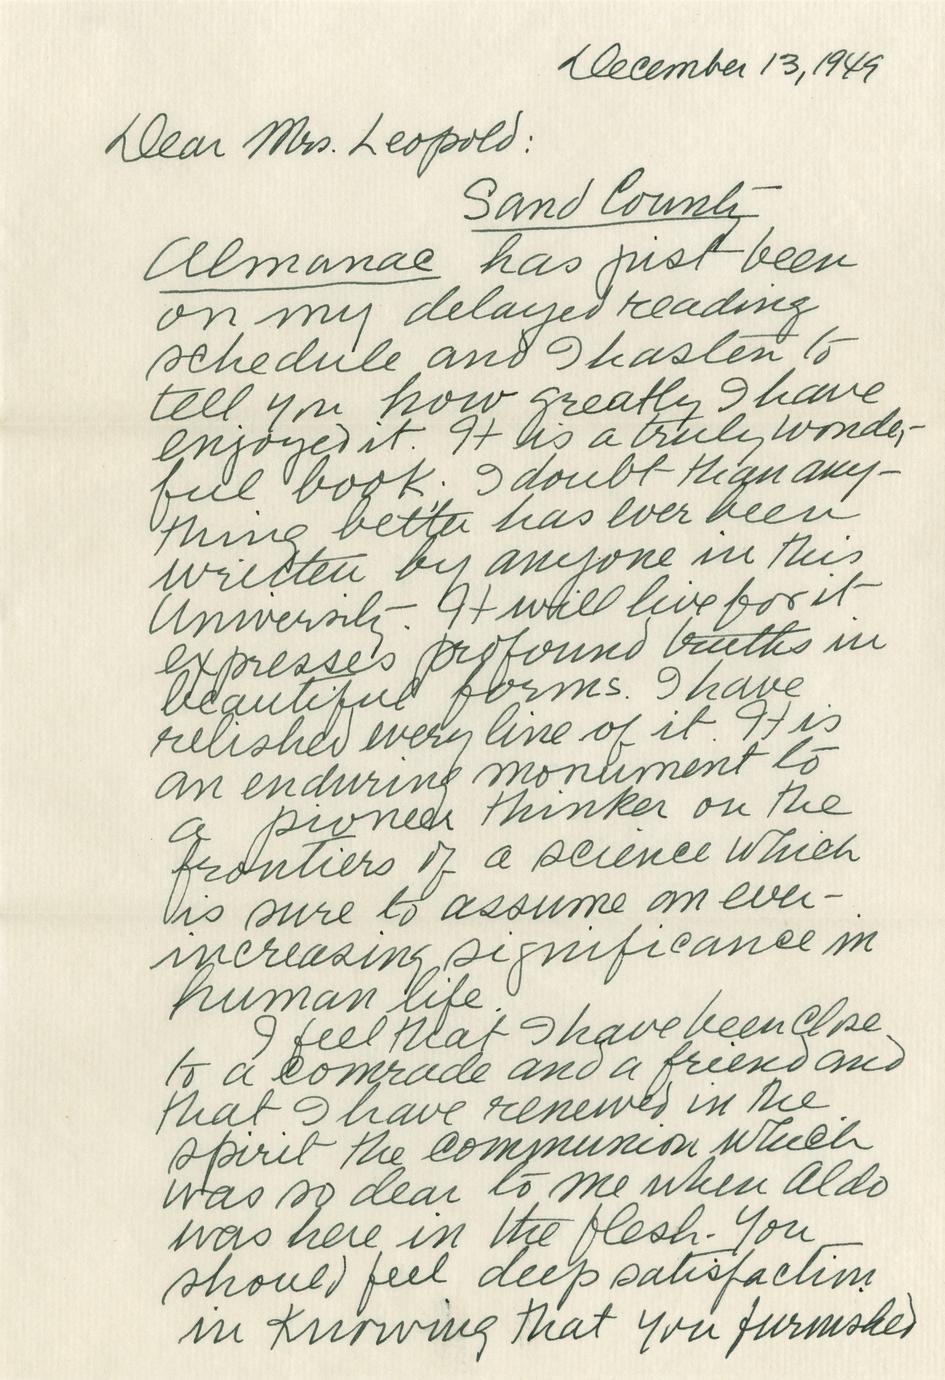 December 13, 1949
Dear Mrs. Leopold:
Sand County
Almanac has just been
on my delayed reading
schedule and I hasten to
tell you how greatly I have
enjoyed it. It is a truly wonder-
ful book. I doubt than any-
thing better has ever been
written by anyone in this
University. It will live for it
expresses profound truths in
beautiful forms. I have
relished every line of it. It is
an enduring monument to
a pioneer thinker on the
frontiers of a science which
is sure to assume an ever-
increasing significance in
human life.
I feel that I have been close
to a comrade and a friend and
that I have renewed in the
spirit the communion which
was so dear to me when Aldo
was here in the flesh. You
should feel deep satisfaction
in knowing that you furnished